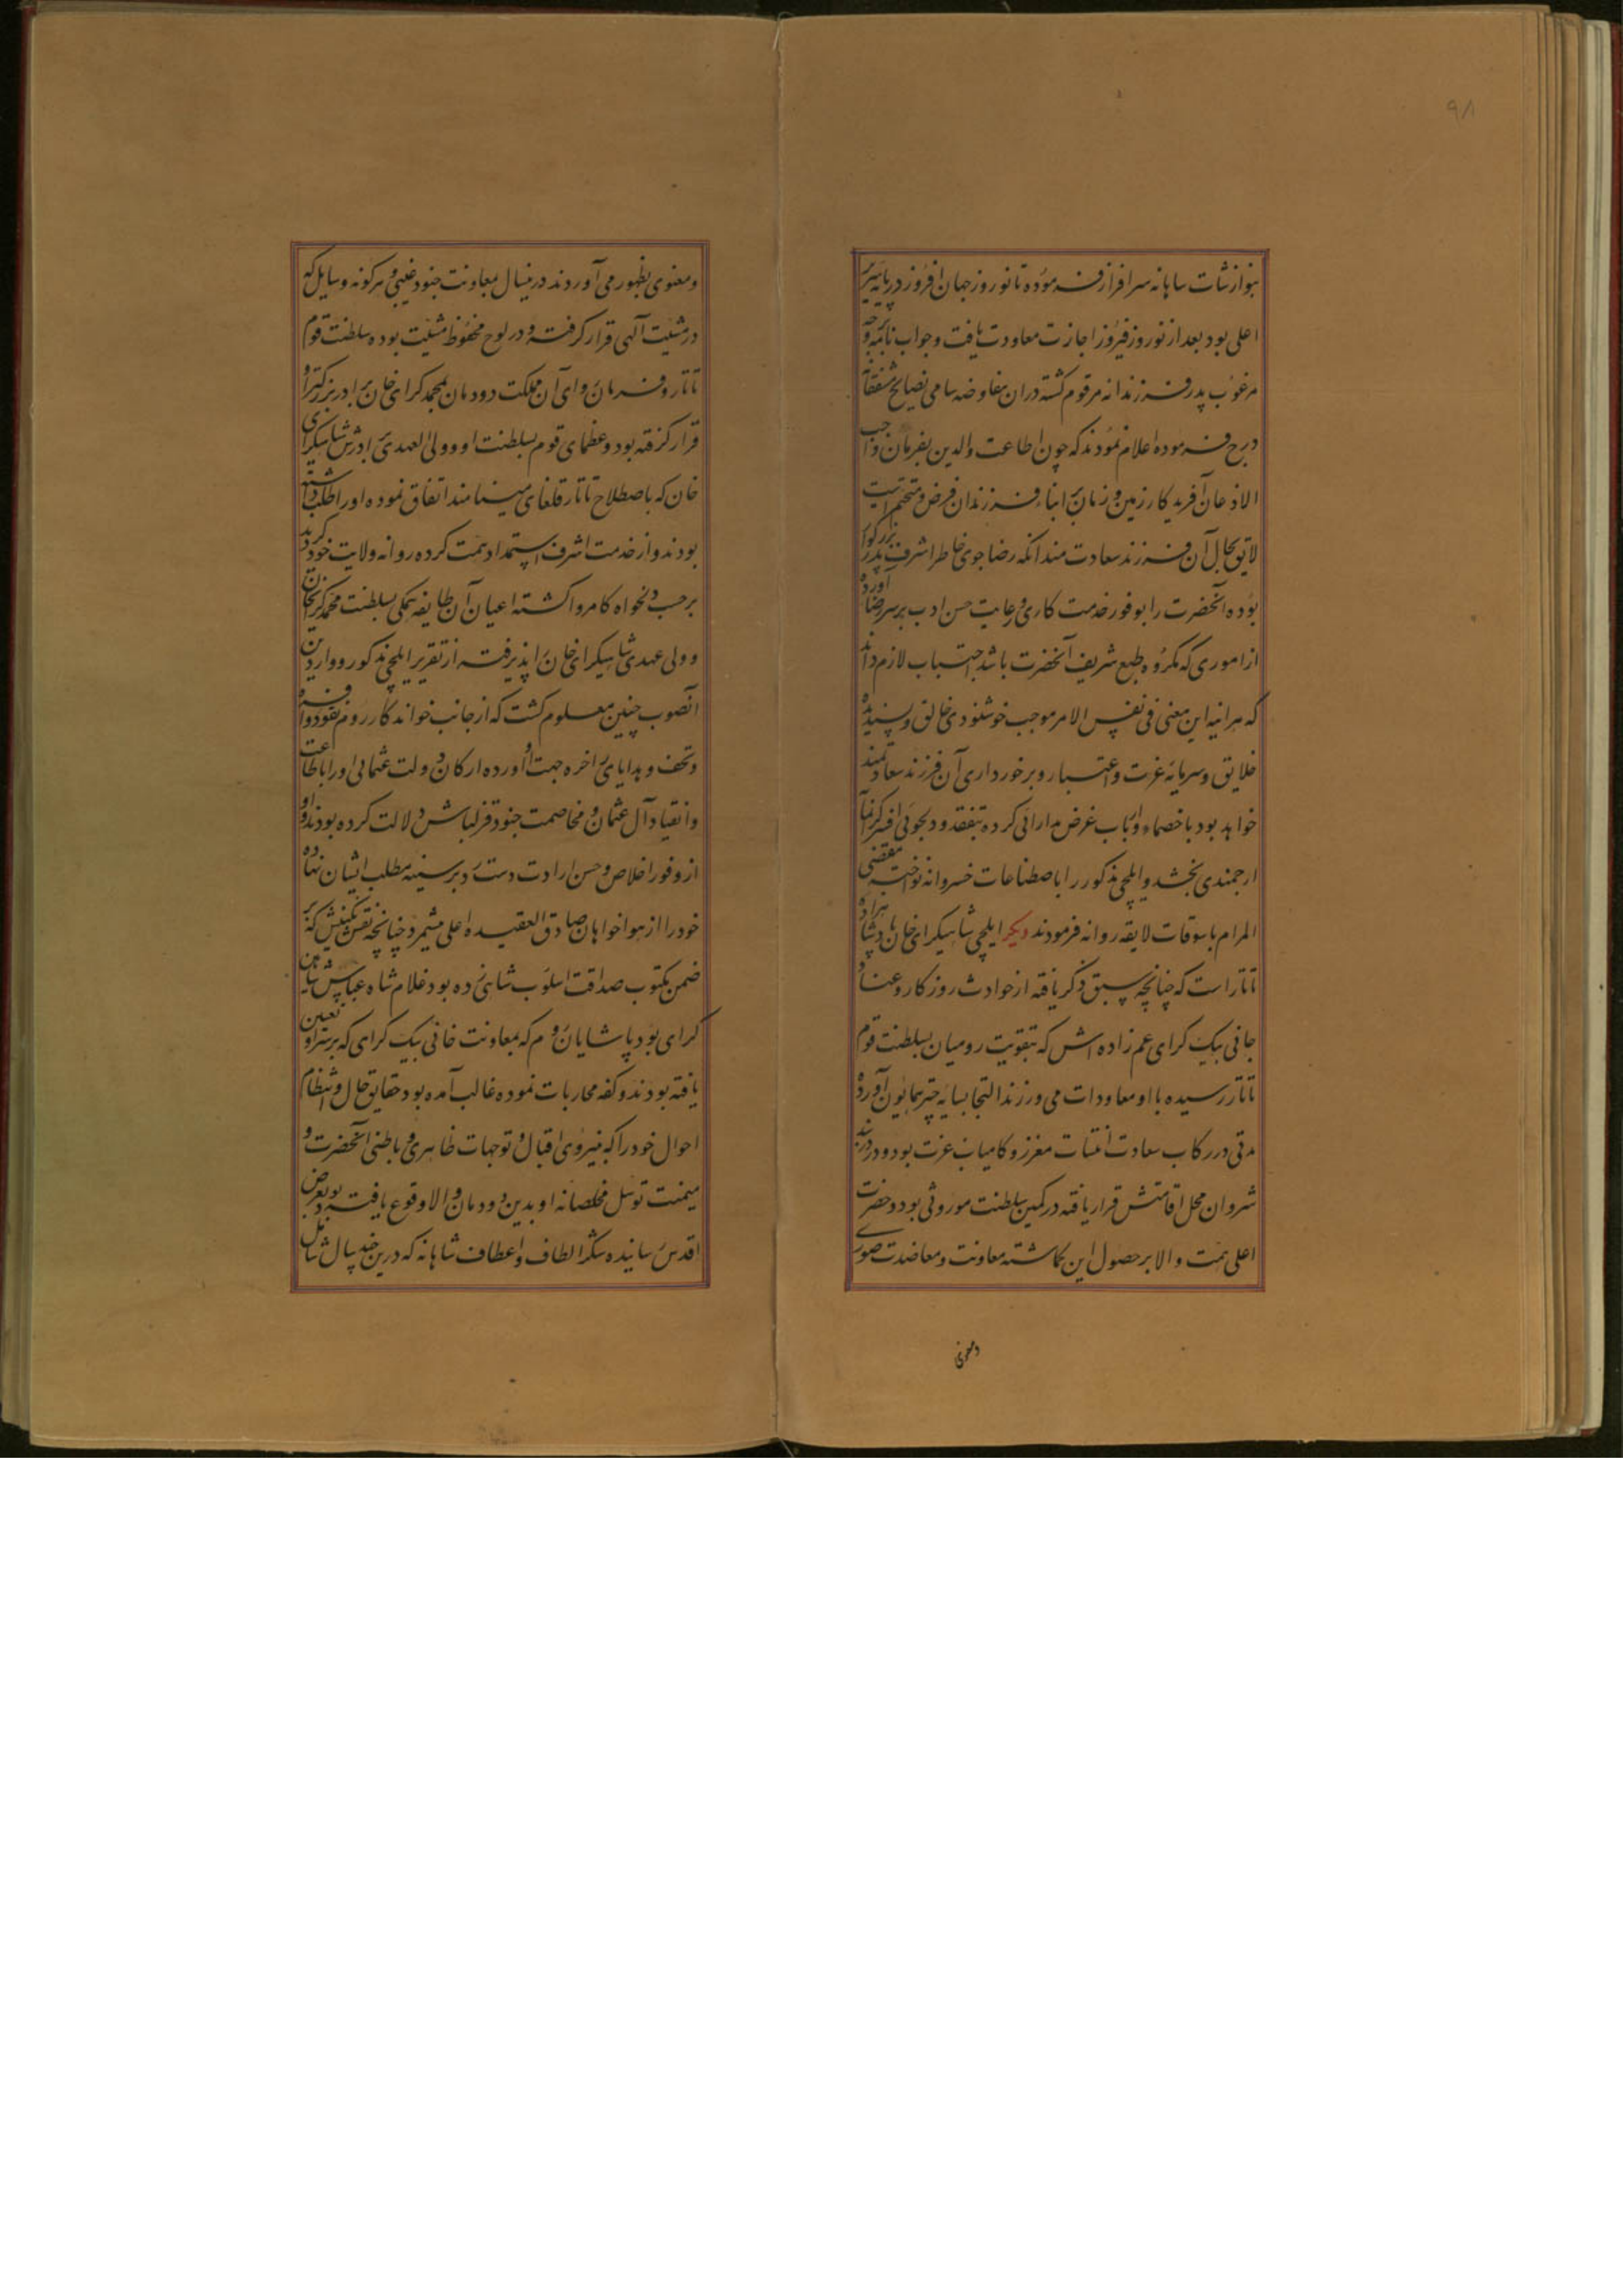 ۹۸
بنوازشات شاهانه سرافراز فرموده تا نوروز جهان افروز در پایه سریر
اعلی بود بعد از نوروز فیروز اجازت معاودت یافت و جواب نامه بوجه
مرغوب پدر فرزندانه مرقوم کشته دران مفاوضه سامی نصایح مشفقانه
درج فرموده اعلام نمودند که چون اطاعت والدین بفرمان واجب
الاذعان آفریدکار زمین و زمان بر ابناء و فرزندان فرض و متحتم است
لایق بحال آن فرزند سعادت مند انکه رضا جوی خاطر اشرف پدر بزرکوار
بوده آنحضرت را بوفور خدمت کاری و رعایت حسن ادب بر سر رضا آورده
از اموری که مکروه طبع شریف آنحضرت باشد اجتناب لازم داند
که هر اینه این معنی فی نفس الامر موجب خوشنودی خالق و پسندیده
خلایق و سرمایه عزت و اعتبار و برخورداری آن فرزند سعادتمند
خواهد بود با خصماء و ارباب غرض مدارائی کرده بتفقد و دلجوئی
ارجمندی بخشد و ایلچی مذکور را باصطناعات خسروانه نواخته مقتضی
المرام با سوقات لایقه روانه فرمودند دیکر ایلچی شاهیکرای خان پادشاهزاده
تاتار است که چنانچه سبق ذکر یافته از حوادث روزکار و عناد
جانی بیک کرای عم زاده اش که بتقویت رومیان بسلطنت قوم
تاتار رسیده با او معاودات می ورزند التجا بسایه چتر همایون آورده
مدتی در رکاب سعادت انتساب معزز و کامیاب عزت بود و در دربند
شروان محل اقامتش قرار یافته در کمین سلطنت موروثی بود و حضرت
اعلی همت والا بر حصول این کماشته معاونت و معاضدت صوری
ومعنوی
و معنوی بظهور می آوردند درینسال بمعاونت جنود غیبی و هر کونه وسایل که
در مشیت آلهی قرار کرفته و در لوح محفوظ مشیت بوده سلطنت قوم
تاتار و فرمان روای آن مملکت دودمان بمحمد کرای خان برادر بزرکتر او
قرار کرفته بود و عظمای قوم بسلطنت او و ولی العهدی برادرش شاهیکرای
خان که باصطلاح تاتار قلغای مینامند اتفاق نموده او را طلب داشته
بودند و از خدمت اشرف استمداد همت کرده روانه ولایت خود کردید
بر حسب دلخواه کامروا کشته اعیان آن طایفه همکی بسلطنت محمد کرایخان
و ولی عهدی شاهیکرای خان را پذیرفته از تقریر ایلچی مذکور و واردین
آنصوب چنین معلوم کشت که از جانب خواندکار روم نقود وافره
و تحف و هدایای فاخره جهت او آورده ارکان دولت عثمانی او را باطاعت
و انقیاد آل عثمان و مخاصمت جنود قزلباش دلالت کرده بودند و او
از وفور اخلاص و حسن ارادت دست رد بر سینه مطلب ایشان نهاده
خود را از هواخواهان صادق العقیده اعلی میشمرد چنانچه نقش نکینش که بر
ضمن مکتوب صداقت اسلوب شانی زده بود غلام شاه عباس شاهین
کرای بود پاشایان روم که بمعاونت خانی بیک کرای که بر سر او تعیین
یافته بودند دو کفه محاربات نموده غالب آمده بود حقایق حال و انتظام
احوال خود را که به نیروی اقبال و توجهات ظاهری و باطنی آنحضرت و
میمنت توسل مخلصانه او بدین دودمان والا وقوع یافته بود بعرض
اقدس رسانیده شکر الطاف و اعطاف شاهانه که درین چند سال شامل